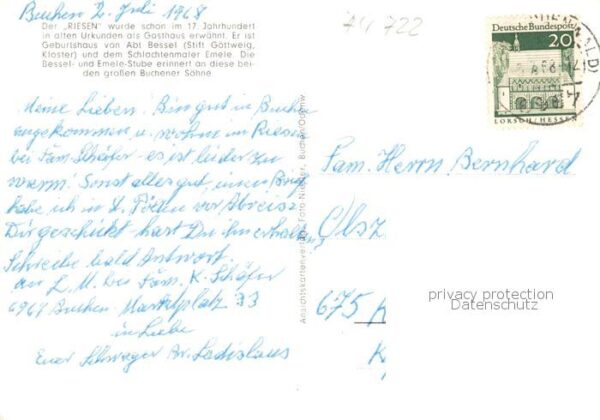 Buchen 2. Juli 1968
Der „RIESEN" wurde schon im 17. Jahrhundert
in alten Urkunden als Gasthaus erwähnt. Er ist
Geburtshaus von Abt Bessel (Stift Göttweig,
Kloster) und dem Schlachtenmaler Emele. Die
Bessel- und Emele-Stube erinnert an diese bei-
den großen Buchener Söhne
74 722
Deutsche Bundespost
20
LORSCH/HESSEN
Meine Lieben. Bin gut in Buchen
angekommen u. wohne im Riesen
bei Fam. Schäfer es ist leider zu
warm! Sonst alles gut, einen Brief
habe ich in vor Abreise
Dir geschickt hast Du ihn erhalten,
Schreibe bald Antwort.
an L. M. bei Fam. K. Schäfer
6967 Buchen Marktplatz 33
in Liebe
Euer Schwager Ladislaus
Ansichtskartenverlag Foto Buchen/Odenw.
Fam. Herrn Bernhard
675 K
K
privacy protection
Datenschutz